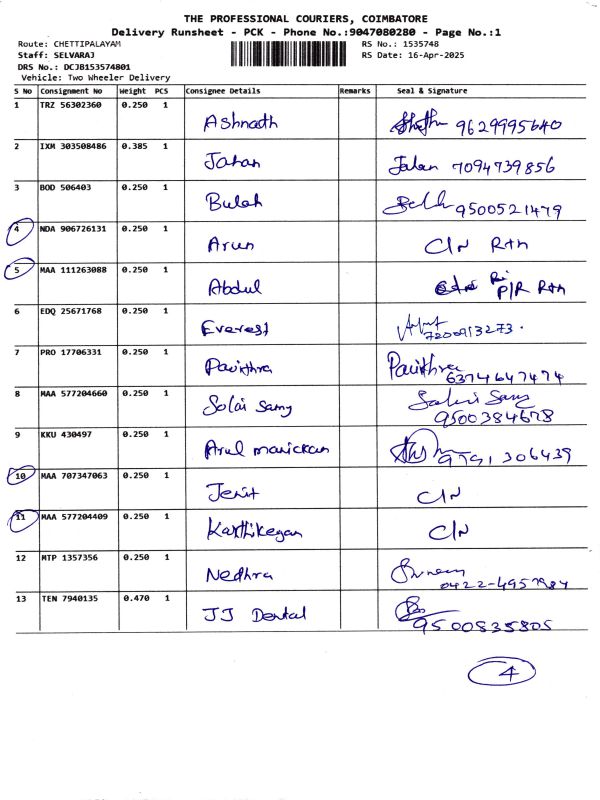 THE PROFESSIONAL COURIERS, COIMBATORE
Delivery Runsheet - PCK - Phone No.:9047080280 - Page No.:1
Route: CHETTIPALAYAM RS No.: 1535748
Staff: SELVARAJ RS Date: 16-Apr-2025
DRS No.: DCJB153574801
Vehicle: Two Wheeler Delivery
S No Consignment No Weight PCS Consignee Details Remarks Seal & Signature
1 TRZ 56302360 0.250 1 Ashnath 9629995640
2 IXM 303508486 0.385 1 Jahan Jahan 7094739856
3 BOD 506403 0.250 1 Bulah 9500521479
4 NDA 906726131 0.250 1 Arun C/N Rtn
5 MAA 111263088 0.250 1 Abdul P/R Rtn
6 EDQ 25671768 0.250 1 Everest 7200913273.
7 PRO 17706331 0.250 1 Pavithra Pavithra 6374647474
8 MAA 577204660 0.250 1 Solai Samy Solai Samy 9500384678
9 KKU 430497 0.250 1 Arul manickam 9791306439
10 MAA 707347063 0.250 1 Jenit C/N
11 MAA 577204409 0.250 1 Karthikeyan C/N
12 MTP 1357356 0.250 1 Nedhra 0422-4957984
13 TEN 7940135 0.470 1 JJ Dental 9500535805
4